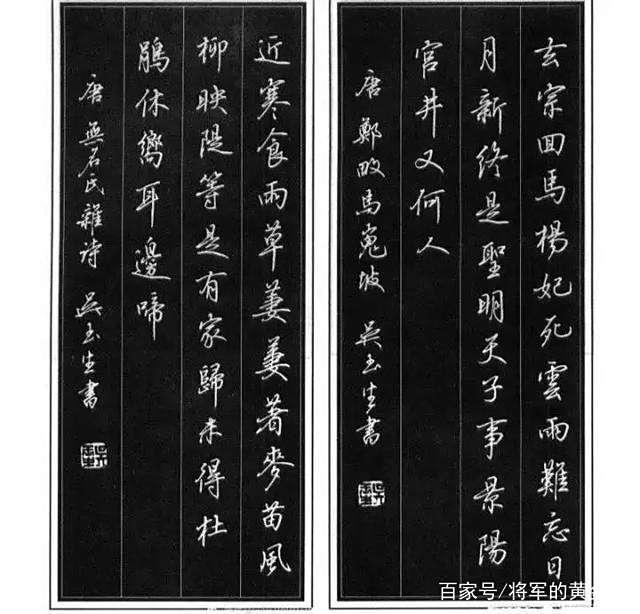 玄宗回馬楊妃死雲雨難忘日
月新終是聖明天子事景陽
宮井又何人
唐 鄭畋馬嵬坡 吳玉生書
近寒食雨草萋萋著麥苗風
柳映隄等是有家歸未得杜
鵑休嚮耳邊啼
唐 無名氏雜詩 吳玉生書
百家号/将军的黄